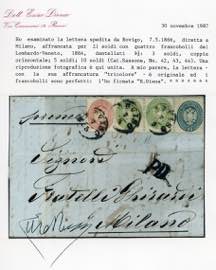 Dott. Enzo Diena
Via Crescenzio 19 Roma
30 novembre 1987
Ho esaminato la lettera spedita da Rovigo, 7.5.1864, diretta a
Milano, affrancata per 21 soldi con quattro francobolli del
Lombardo-Veneto, 1864, dentellati 9½: 3 soldi, coppia
orizzontale; 5 soldi; 10 soldi (Cat.Sassone, No. 42, 43, 44). Una
riproduzione fotografica è qui unita. A mio parere, la lettera -
con la sua affrancatura "tricolore" - è originale ed i
francobolli sono perfetti: l'ho firmata "E.Diena".
Signori
Fratelli
Milano